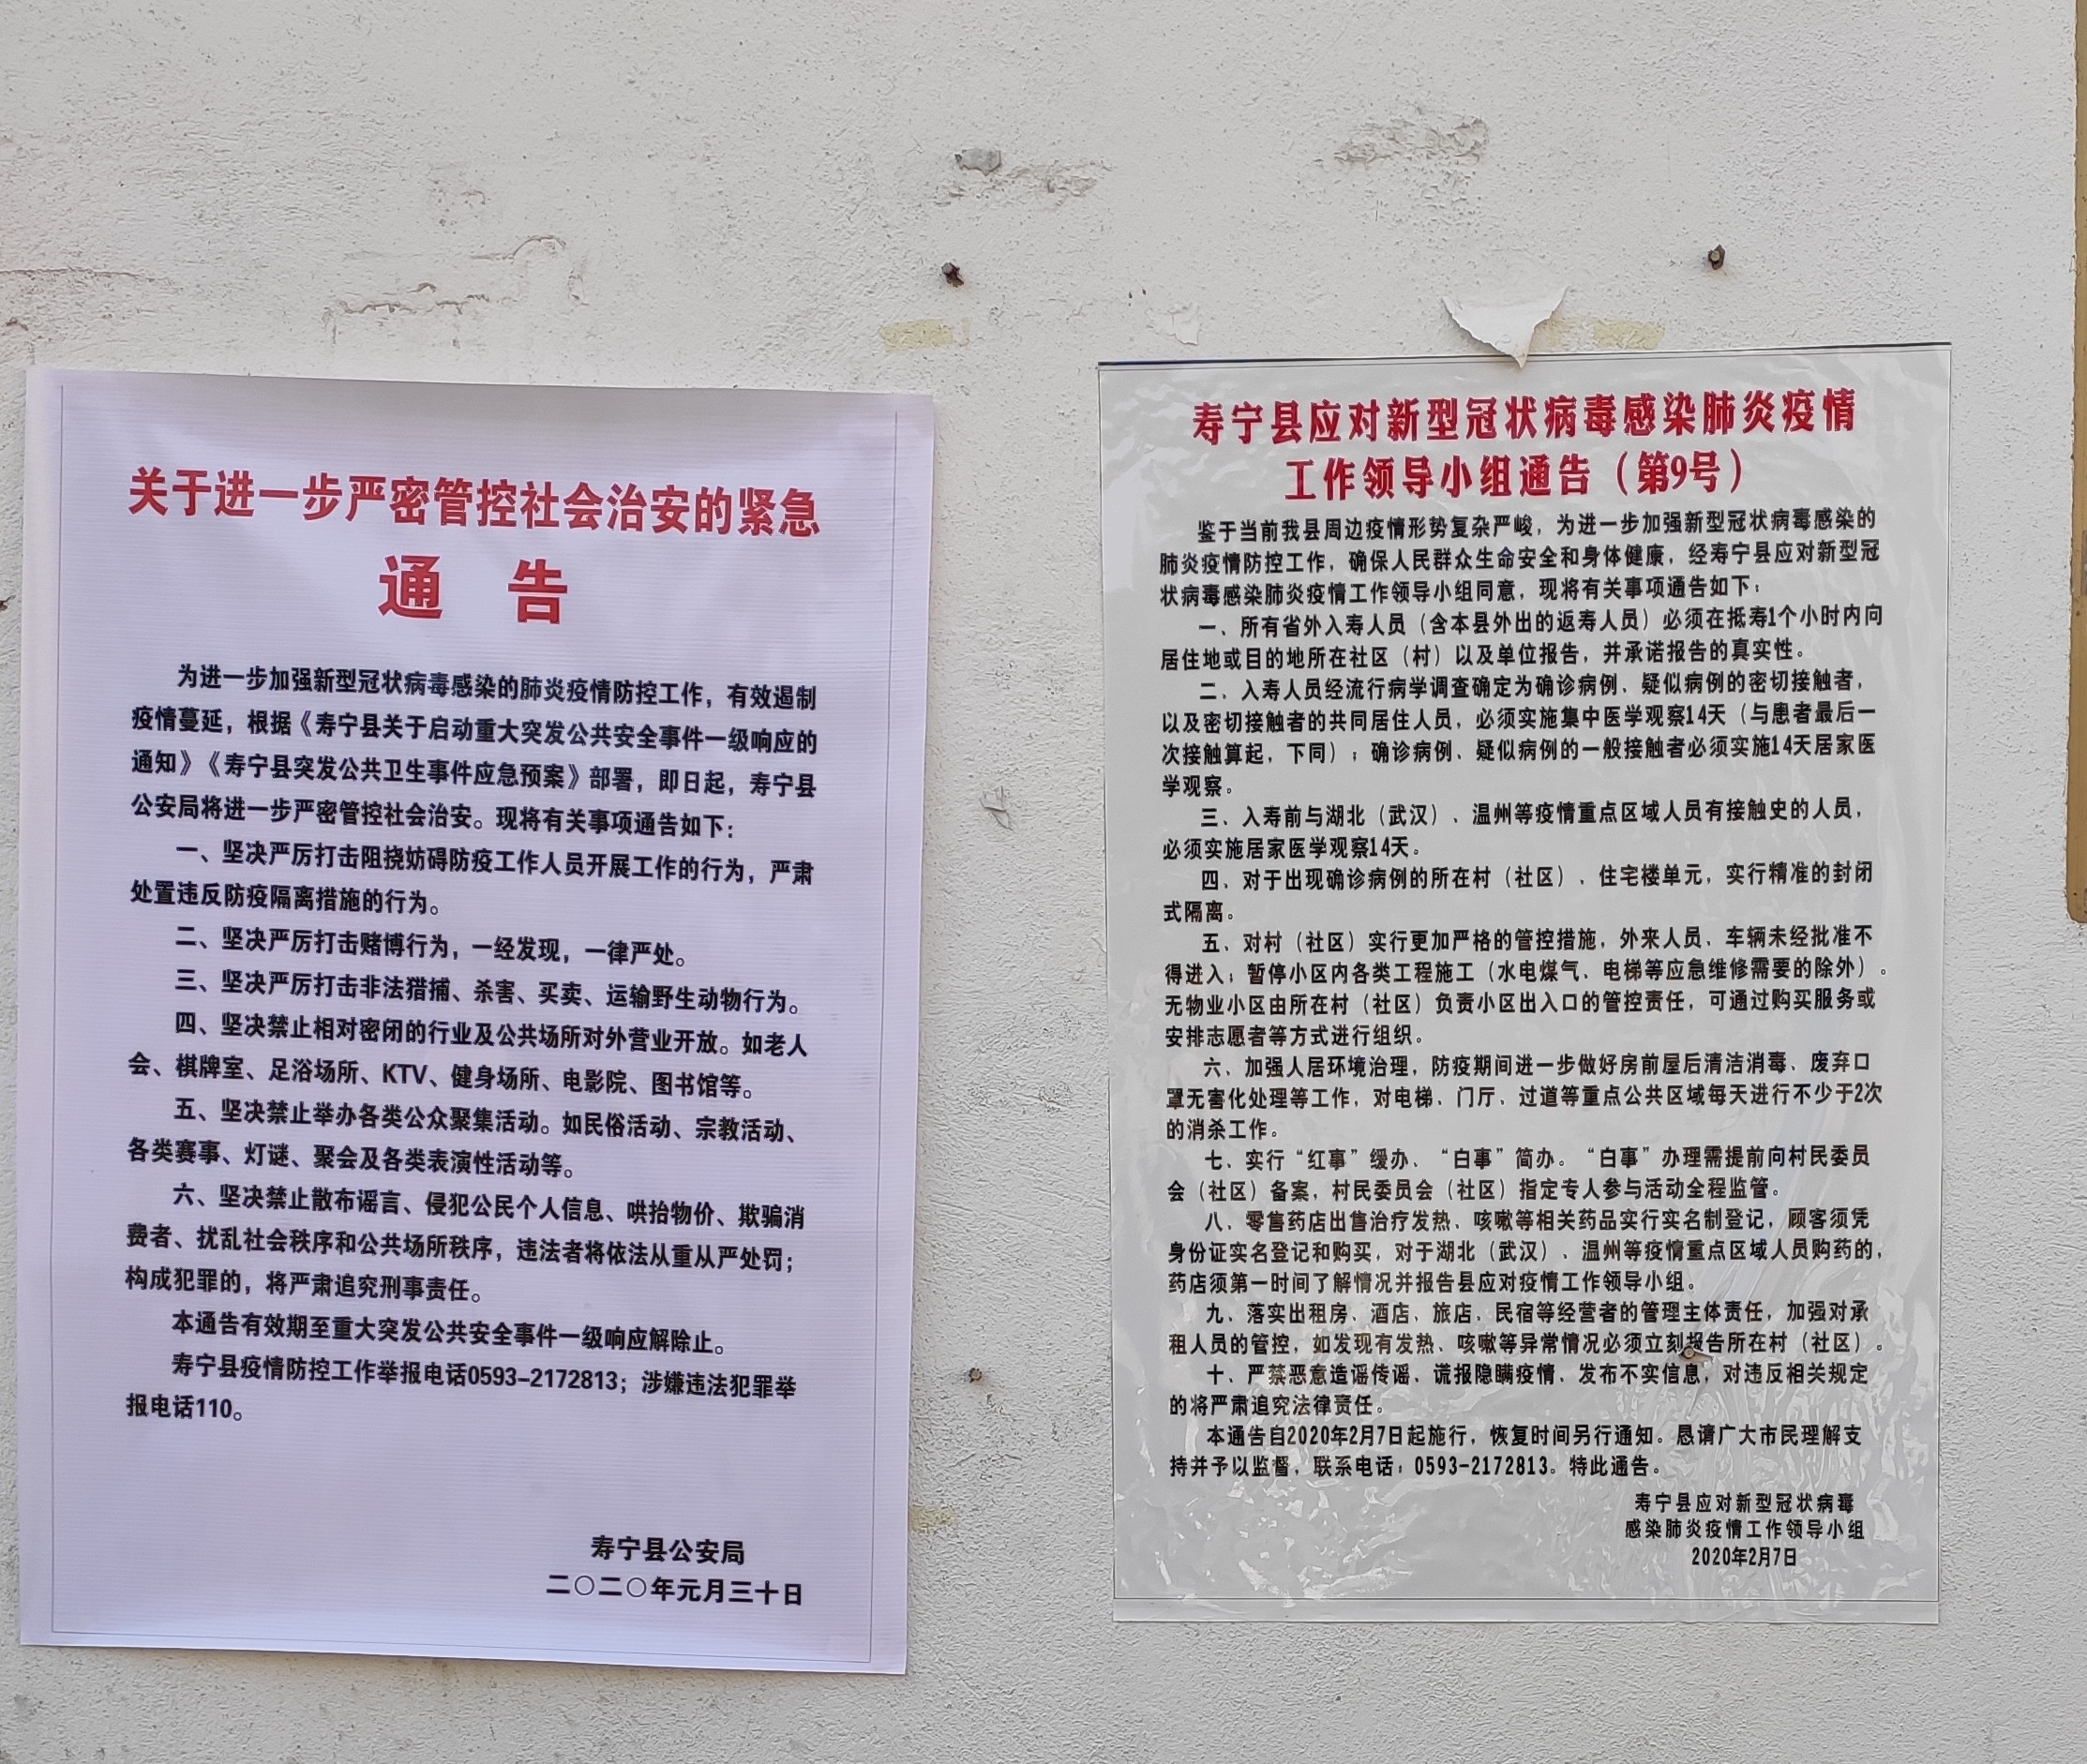 关于进一步严密管控社会治安的紧急
通 告
为进一步加强新型冠状病毒感染的肺炎疫情防控工作，有效遏制
疫情蔓延，根据《寿宁县关于启动重大突发公共安全事件一级响应的
通知》《寿宁县突发公共卫生事件应急预案》部署，即日起，寿宁县
公安局将进一步严密管控社会治安。现将有关事项通告如下：
一、坚决严厉打击阻挠妨碍防疫工作人员开展工作的行为，严肃
处置违反防疫隔离措施的行为。
二、坚决严厉打击赌博行为，一经发现，一律严处。
三、坚决严厉打击非法猎捕、杀害、买卖、运输野生动物行为。
四、坚决禁止相对密闭的行业及公共场所对外营业开放。如老人
会、棋牌室、足浴场所、KTV、健身场所、电影院、图书馆等。
五、坚决禁止举办各类公众聚集活动。如民俗活动、宗教活动、
各类赛事、灯谜、聚会及各类表演性活动等。
六、坚决禁止散布谣言、侵犯公民个人信息、哄抬物价、欺骗消
费者、扰乱社会秩序和公共场所秩序，违法者将依法从重从严处罚；
构成犯罪的，将严肃追究刑事责任。
本通告有效期至重大突发公共安全事件一级响应解除止。
寿宁县疫情防控工作举报电话0593-2172813；涉嫌违法犯罪举
报电话110。
寿宁县公安局
二〇二〇年元月三十日
寿宁县应对新型冠状病毒感染肺炎疫情
工作领导小组通告（第9号）
鉴于当前我县周边疫情形势复杂严峻，为进一步加强新型冠状病毒感染的
肺炎疫情防控工作，确保人民群众生命安全和身体健康，经寿宁县应对新型冠
状病毒感染肺炎疫情工作领导小组同意，现将有关事项通告如下：
一、所有省外入寿人员（含本县外出的返寿人员）必须在抵寿1个小时内向
居住地或目的地所在社区（村）以及单位报告，并承诺报告的真实性。
二、入寿人员经流行病学调查确定为确诊病例、疑似病例的密切接触者，
以及密切接触者的共同居住人员，必须实施集中医学观察14天（与患者最后一
次接触算起，下同）；确诊病例、疑似病例的一般接触者必须实施14天居家医
学观察。
三、入寿前与湖北（武汉）、温州等疫情重点区域人员有接触史的人员，
必须实施居家医学观察14天。
四、对于出现确诊病例的所在村（社区）、住宅楼单元，实行精准的封闭
式隔离。
五、对村（社区）实行更加严格的管控措施，外来人员、车辆未经批准不
得进入；暂停小区内各类工程施工（水电煤气、电梯等应急维修需要的除外）。
无物业小区由所在村（社区）负责小区出入口的管控责任，可通过购买服务或
安排志愿者等方式进行组织。
六、加强人居环境治理，防疫期间进一步做好房前屋后清洁消毒、废弃口
罩无害化处理等工作，对电梯、门厅、过道等重点公共区域每天进行不少于2次
的消杀工作。
七、实行“红事”缓办、“白事”简办。“白事”办理需提前向村民委员
会（社区）备案，村民委员会（社区）指定专人参与活动全程监管。
八、零售药店出售治疗发热、咳嗽等相关药品实行实名制登记，顾客须凭
身份证实名登记和购买，对于湖北（武汉）、温州等疫情重点区域人员购药的，
药店须第一时间了解情况并报告县应对疫情工作领导小组。
九、落实出租房、酒店、旅店、民宿等经营者的管理主体责任，加强对承
租人员的管控，如发现有发热、咳嗽等异常情况必须立刻报告所在村（社区）。
十、严禁恶意造谣传谣、谎报隐瞒疫情、发布不实信息，对违反相关规定
的将严肃追究法律责任。
本通告自2020年2月7日起施行，恢复时间另行通知。恳请广大市民理解支
持并予以监督，联系电话：0593-2172813。特此通告。
寿宁县应对新型冠状病毒
感染肺炎疫情工作领导小组
2020年2月7日